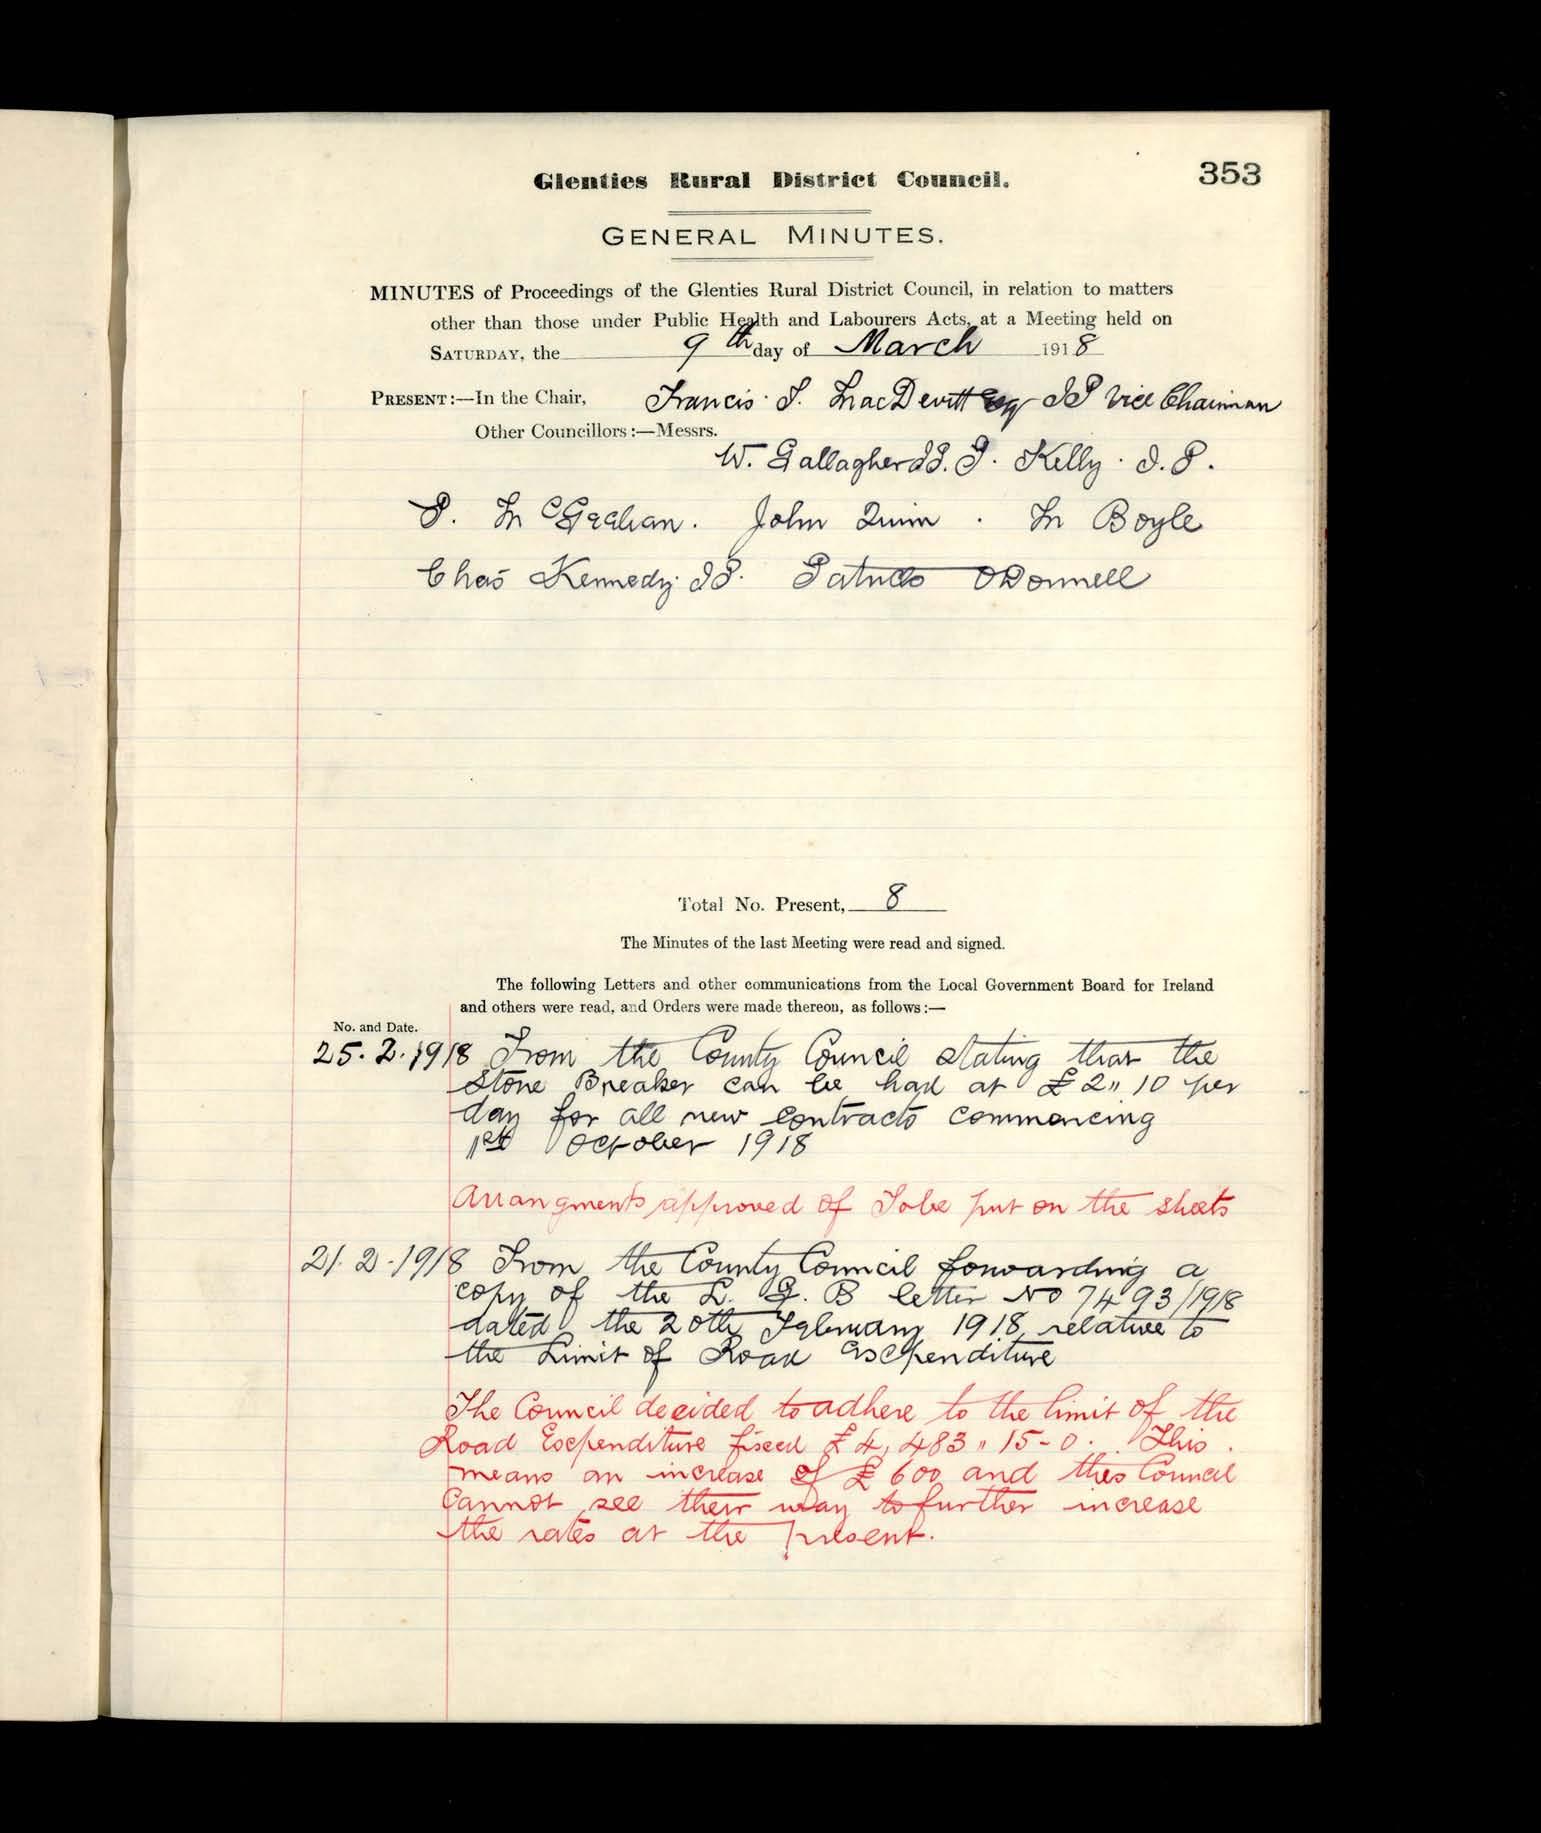 353
Glenties Rural District Council.
GENERAL MINUTES.
MINUTES of Proceedings of the Glenties Rural District Council, in relation to matters
other than those under Public Health and Labourers Acts, at a Meeting held on
SATURDAY, the 9th day of March 1918
PRESENT:—In the Chair, Francis. J. MacDevitt Esq JP Vice Chairman
Other Councillors:—Messrs.
W. Gallagher JP. J. Kelly. J.P.
P. McGeehan. John Quinn. M Boyle
Chas Kennedy JP. Patrick O'Donnell
Total No. Present, 8
The Minutes of the last Meeting were read and signed.
The following Letters and other communications from the Local Government Board for Ireland
and others were read, and Orders were made thereon, as follows:—
No. and Date.
25.2.1918 From the County Council stating that the
Stone Breaker can be had at £2" 10 per
day for all new contracts commencing
1st October 1918
Arrangments approved of To be put on the sheets
21.2.1918 From the County Council forwarding a
copy of the L. G. B letter No 7493/1918
dated the 20th February 1918 relative to
the Limit of Road Expenditure
The Council decided to adhere to the limit of the
Road Expenditure fixed £4,483" 15-0. This
means an increase of £600 and this Council
cannot see their way to further increase
the rates at the present.